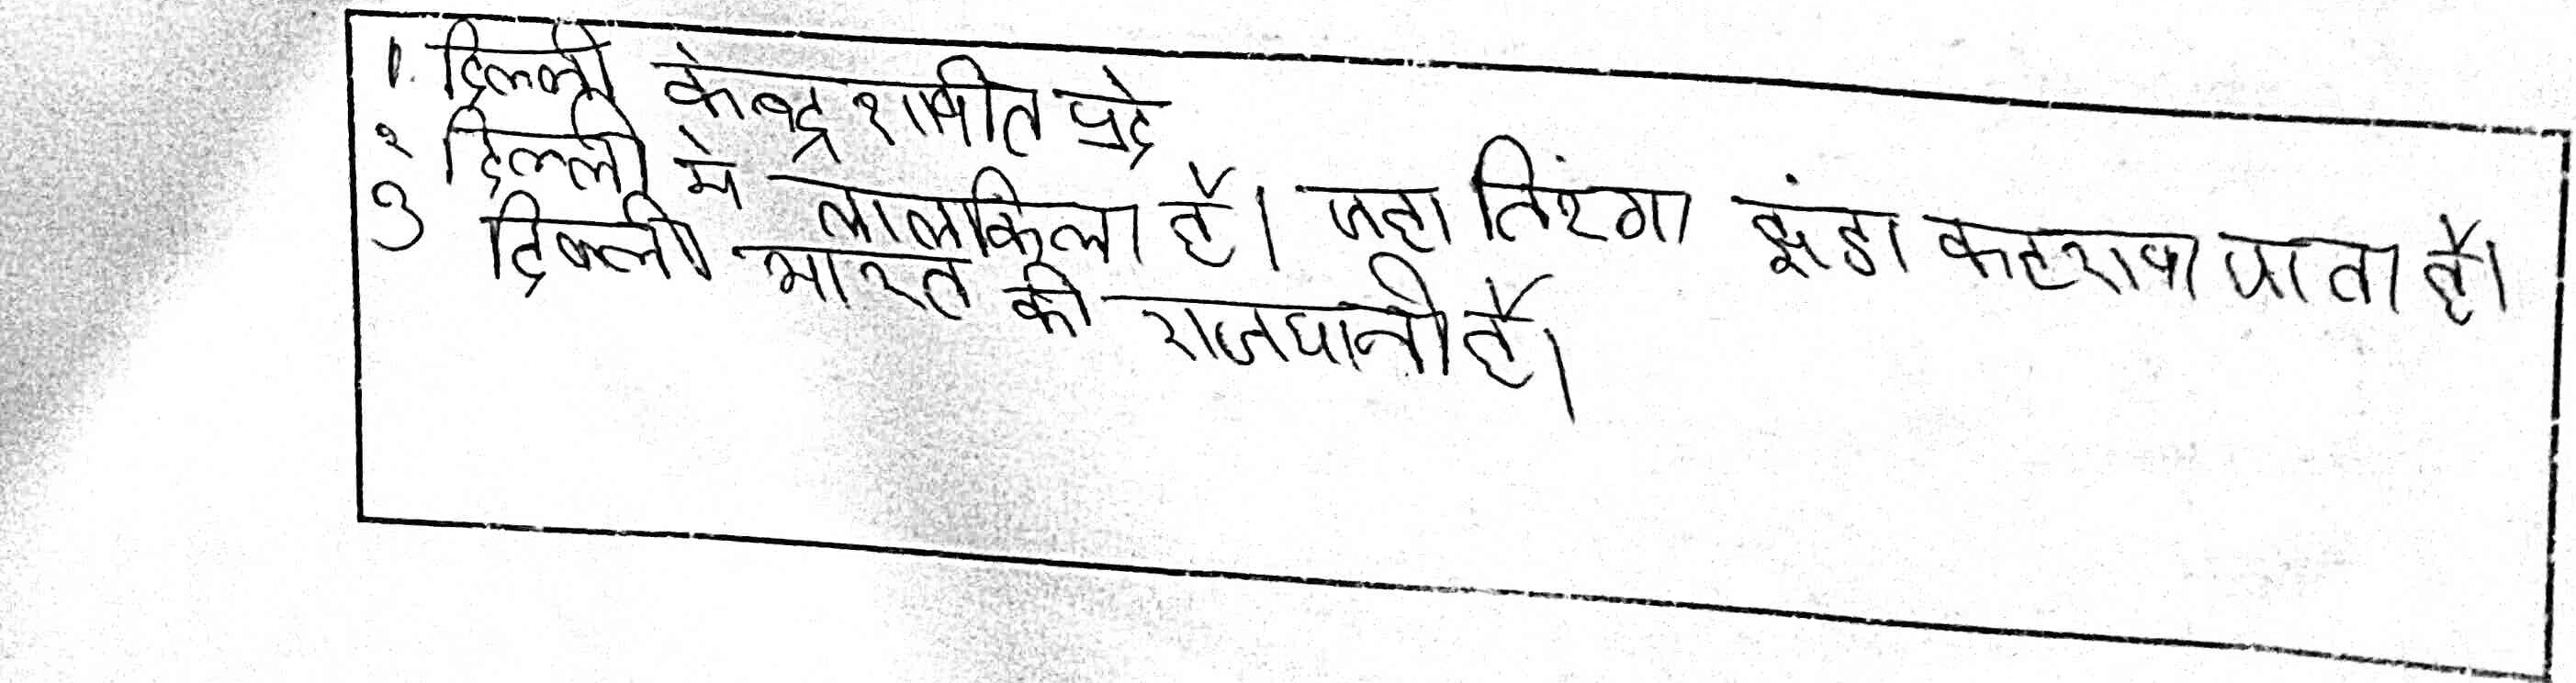 1. दिल्ली केन्द्र शाषीत प्रदे
२ दिल्ली मे लालकिला है। जहा तिरंगा झंडा फहराया जाता है।
3 दिल्ली भारत की राजधानी है।